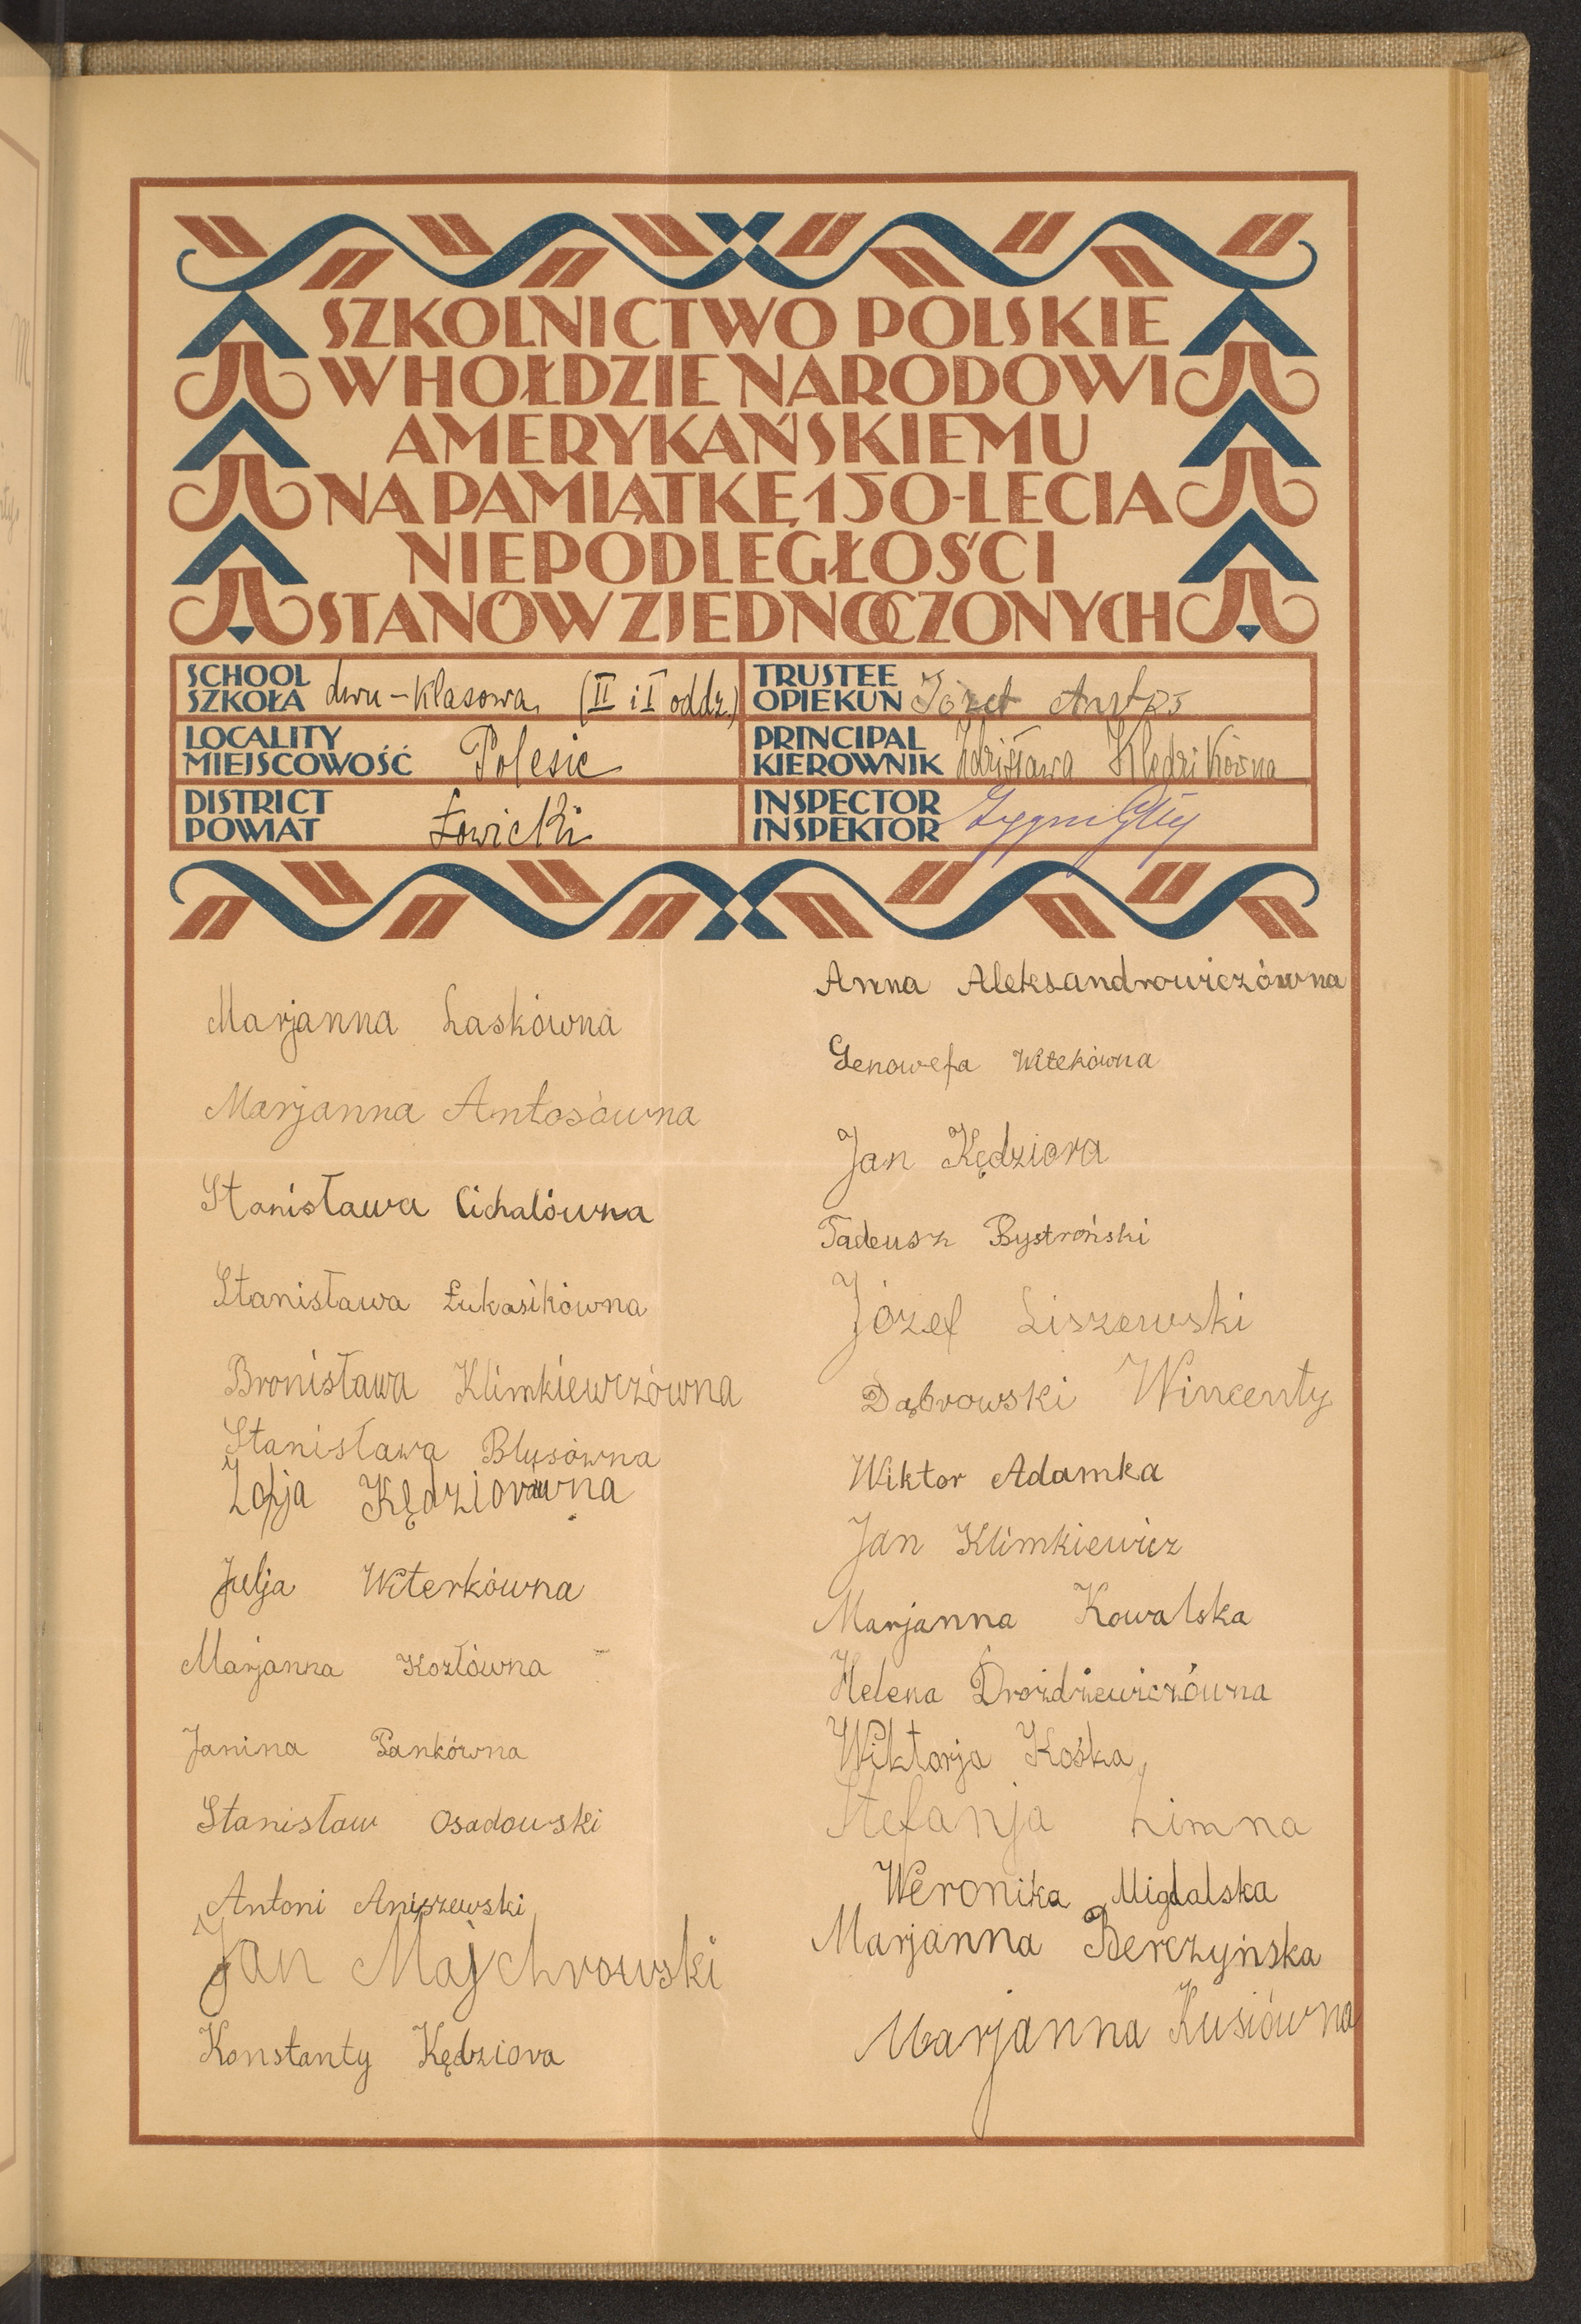 SZKOLNICTWO POLSKIE
W HOŁDZIE NARODOWI
AMERYKAŃSKIEMU
NA PAMIĄTKĘ 150-LECIA
NIEPODLEGŁOŚCI
STANÓW ZJEDNOCZONYCH
SCHOOL
SZKOŁA dwu-klasowa (II i I oddz.)
TRUSTEE
OPIEKUN Józef Antos
LOCALITY
MIEJSCOWOŚĆ Polesie
PRINCIPAL
KIEROWNIK Zdzisława Klędzikówna
DISTRICT
POWIAT Łowicki
INSPECTOR
INSPEKTOR
Marjanna Laskówna
Marjanna Antosówna
Stanisława Cichalówna
Stanisława Łukasikówna
Bronisława Klimkiewczówna
Stanisława Blusówna
Zofja Kędziorówna
Julja Witerkówna
Marjanna Kozłówna
Janina Pankówna
Stanisław Osadowski
Antoni Aniszewski
Jan Majchrowski
Konstanty Kędziora
Anna Aleksandrowiczówna
Genowefa Witekówna
Jan Kędziora
Tadeusz Bystroński
Józef Liszewski
Dąbrowski Wincenty
Wiktor Adamka
Jan Klimkiewicz
Marjanna Kowalska
Helena Drożdżewiczówna
Wiktorja Kośka
Stefanja Limna
Weronika Migdalska
Marjanna Berczyńska
Marjanna Kusiówna